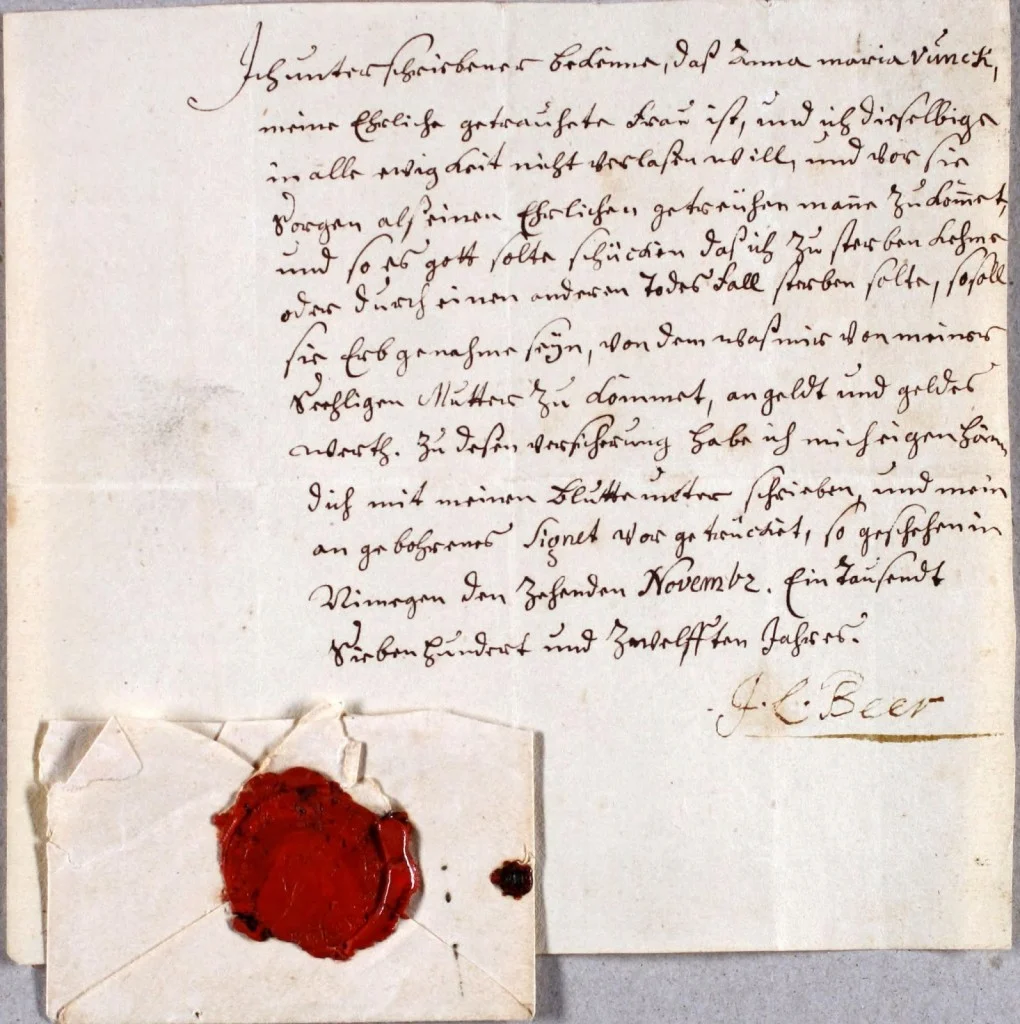 Ich unterschriebener bekenne, daß Anna maria Vunck,
meine Ehrliche getrauhete Frau ist, und ich dieselbige
in alle ewigkeit nicht verlaßen will, und vor sie
Sorgen alß einen Ehrlichen getreühen manne zukom̃et,
und so es gott solte schücken daß ich zu sterben kehme
oder durch einen anderen Todes Fall sterben solte, so soll
sie Erbgenahme seÿn, von dem waß mir von meiner
Seehligen Mutter zu kommet, an geldt und geldes
werth. Zu deßen versicherung habe ich mich eigen hän
dich mit meinen Blutte unter schrieben, und mein
an gebohrenes Signet vor getrücket, so geschehen in
Nimegen den Zehenden Novembr. Ein Tausendt
Sieben hundert und Zwelfften Jahres.
J. C. Beer